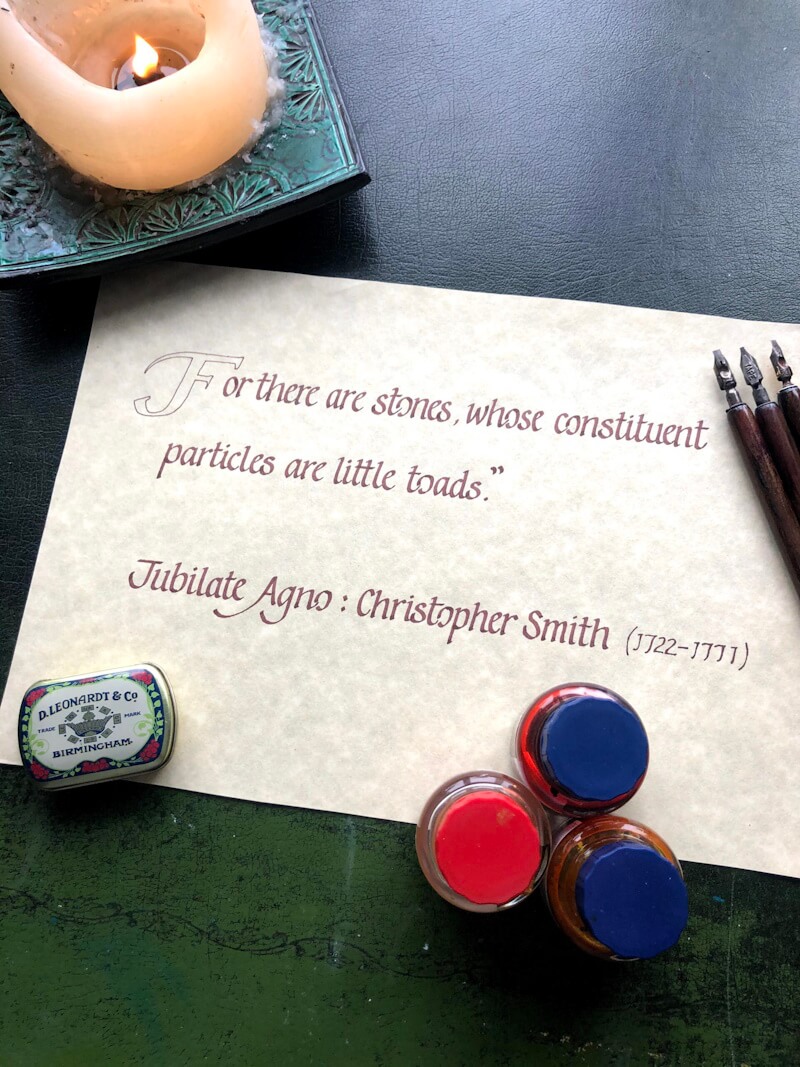 For there are stones, whose constituent
particles are little toads.”
Jubilate Agno : Christopher Smith (1722–1771)
D. LEONARDT & Co
TRADE MARK
BIRMINGHAM.